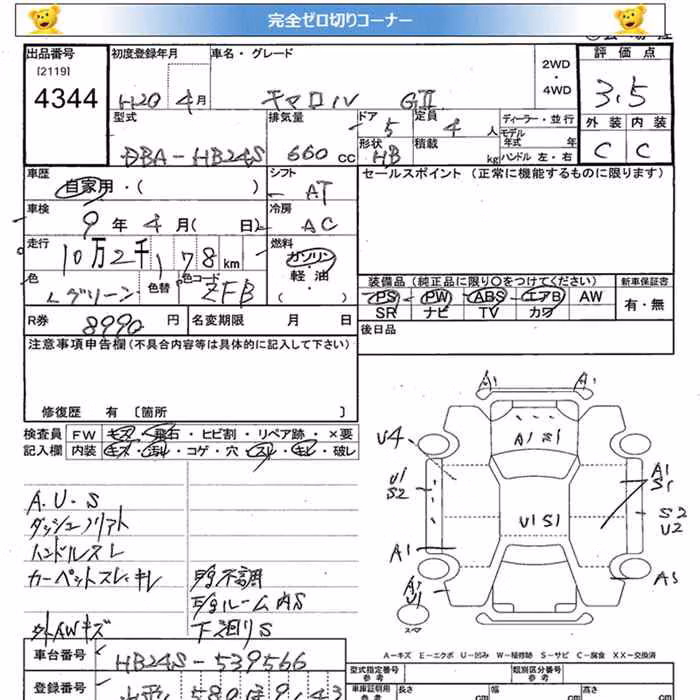 完全ゼロ切りコーナー
出品番号
[2119]
4344
初度登録年月
H20 4月
車名・グレード
キャロル GⅡ
2WD
・
4WD
評価点
3.5
型式
DBA-HB24S
排気量
660 cc
ドア 5
形状 HB
定員 4 人
積載 kg
ディーラー・並行
モデル
年式 年
ハンドル 左・右
外装 内装
C C
車歴
自家用・( )
シフト
AT
セールスポイント (正常に機能するものに限ります)
車検
9年4月( 日)
冷房
AC
走行
10万2千178km
燃料
ガソリン
・
軽・油
( ・ )
色
Lグリーン
色替
色コード
ZFB
装備品 (純正品に限り○をつけてください) 新車保証書
PS PW ABS エアB AW 有・無
SR ナビ TV カワ
R券 8990 円 名変期限 月 日
後日品
注意事項申告欄(不具合内容等は具体的に記入して下さい)
修復歴 有 [箇所 ]
検査員 FW キズ・飛石・ヒビ割・リペア跡・×要
記入欄 内装 キズ・汚れ・コゲ・穴・スレ・キレ・破レ
A.U.S
ダッシュソリアト
ハンドルスレ
カーペットスレ・キレ
外AWキズ
E/g不調
E/gルーム内S
下廻りS
A1 A1
A1 S1
U4
U1
S2
A1
S1
S2
U2
U1 S1
A1
A3
A1
U1
スマ
A-キズ E-エクボ U-凹み W-補修跡 S-サビ C-腐食 XX-交換済
車台番号 HB24S-539566
登録番号 山形 580
型式指定番号
参考
類別区分番号
参考
車庫証明用
参考
長さ cm
幅 cm
高さ cm